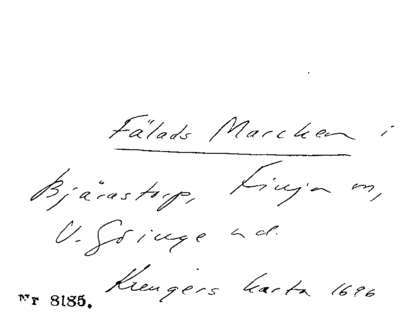 Fälads Marcken i
Bjärastorp, Finja sn,
V. Göinge hd.
Kreugers karta 1696
Nr 8185.